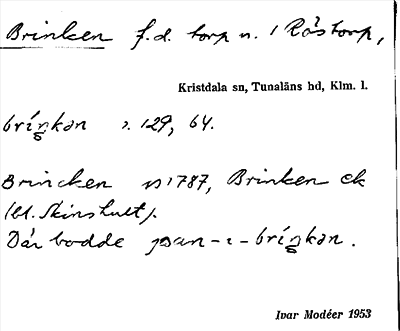 Brinken f.d. torp u. 1 Råstorp,
Kristdala sn, Tunaläns hd, Klm. l.
bríŋkən 129, 64.
Brincken 1787, Brinken ek
(bl. Skinshult).
Där bodde bríŋkən.
Ivar Modéer 1953